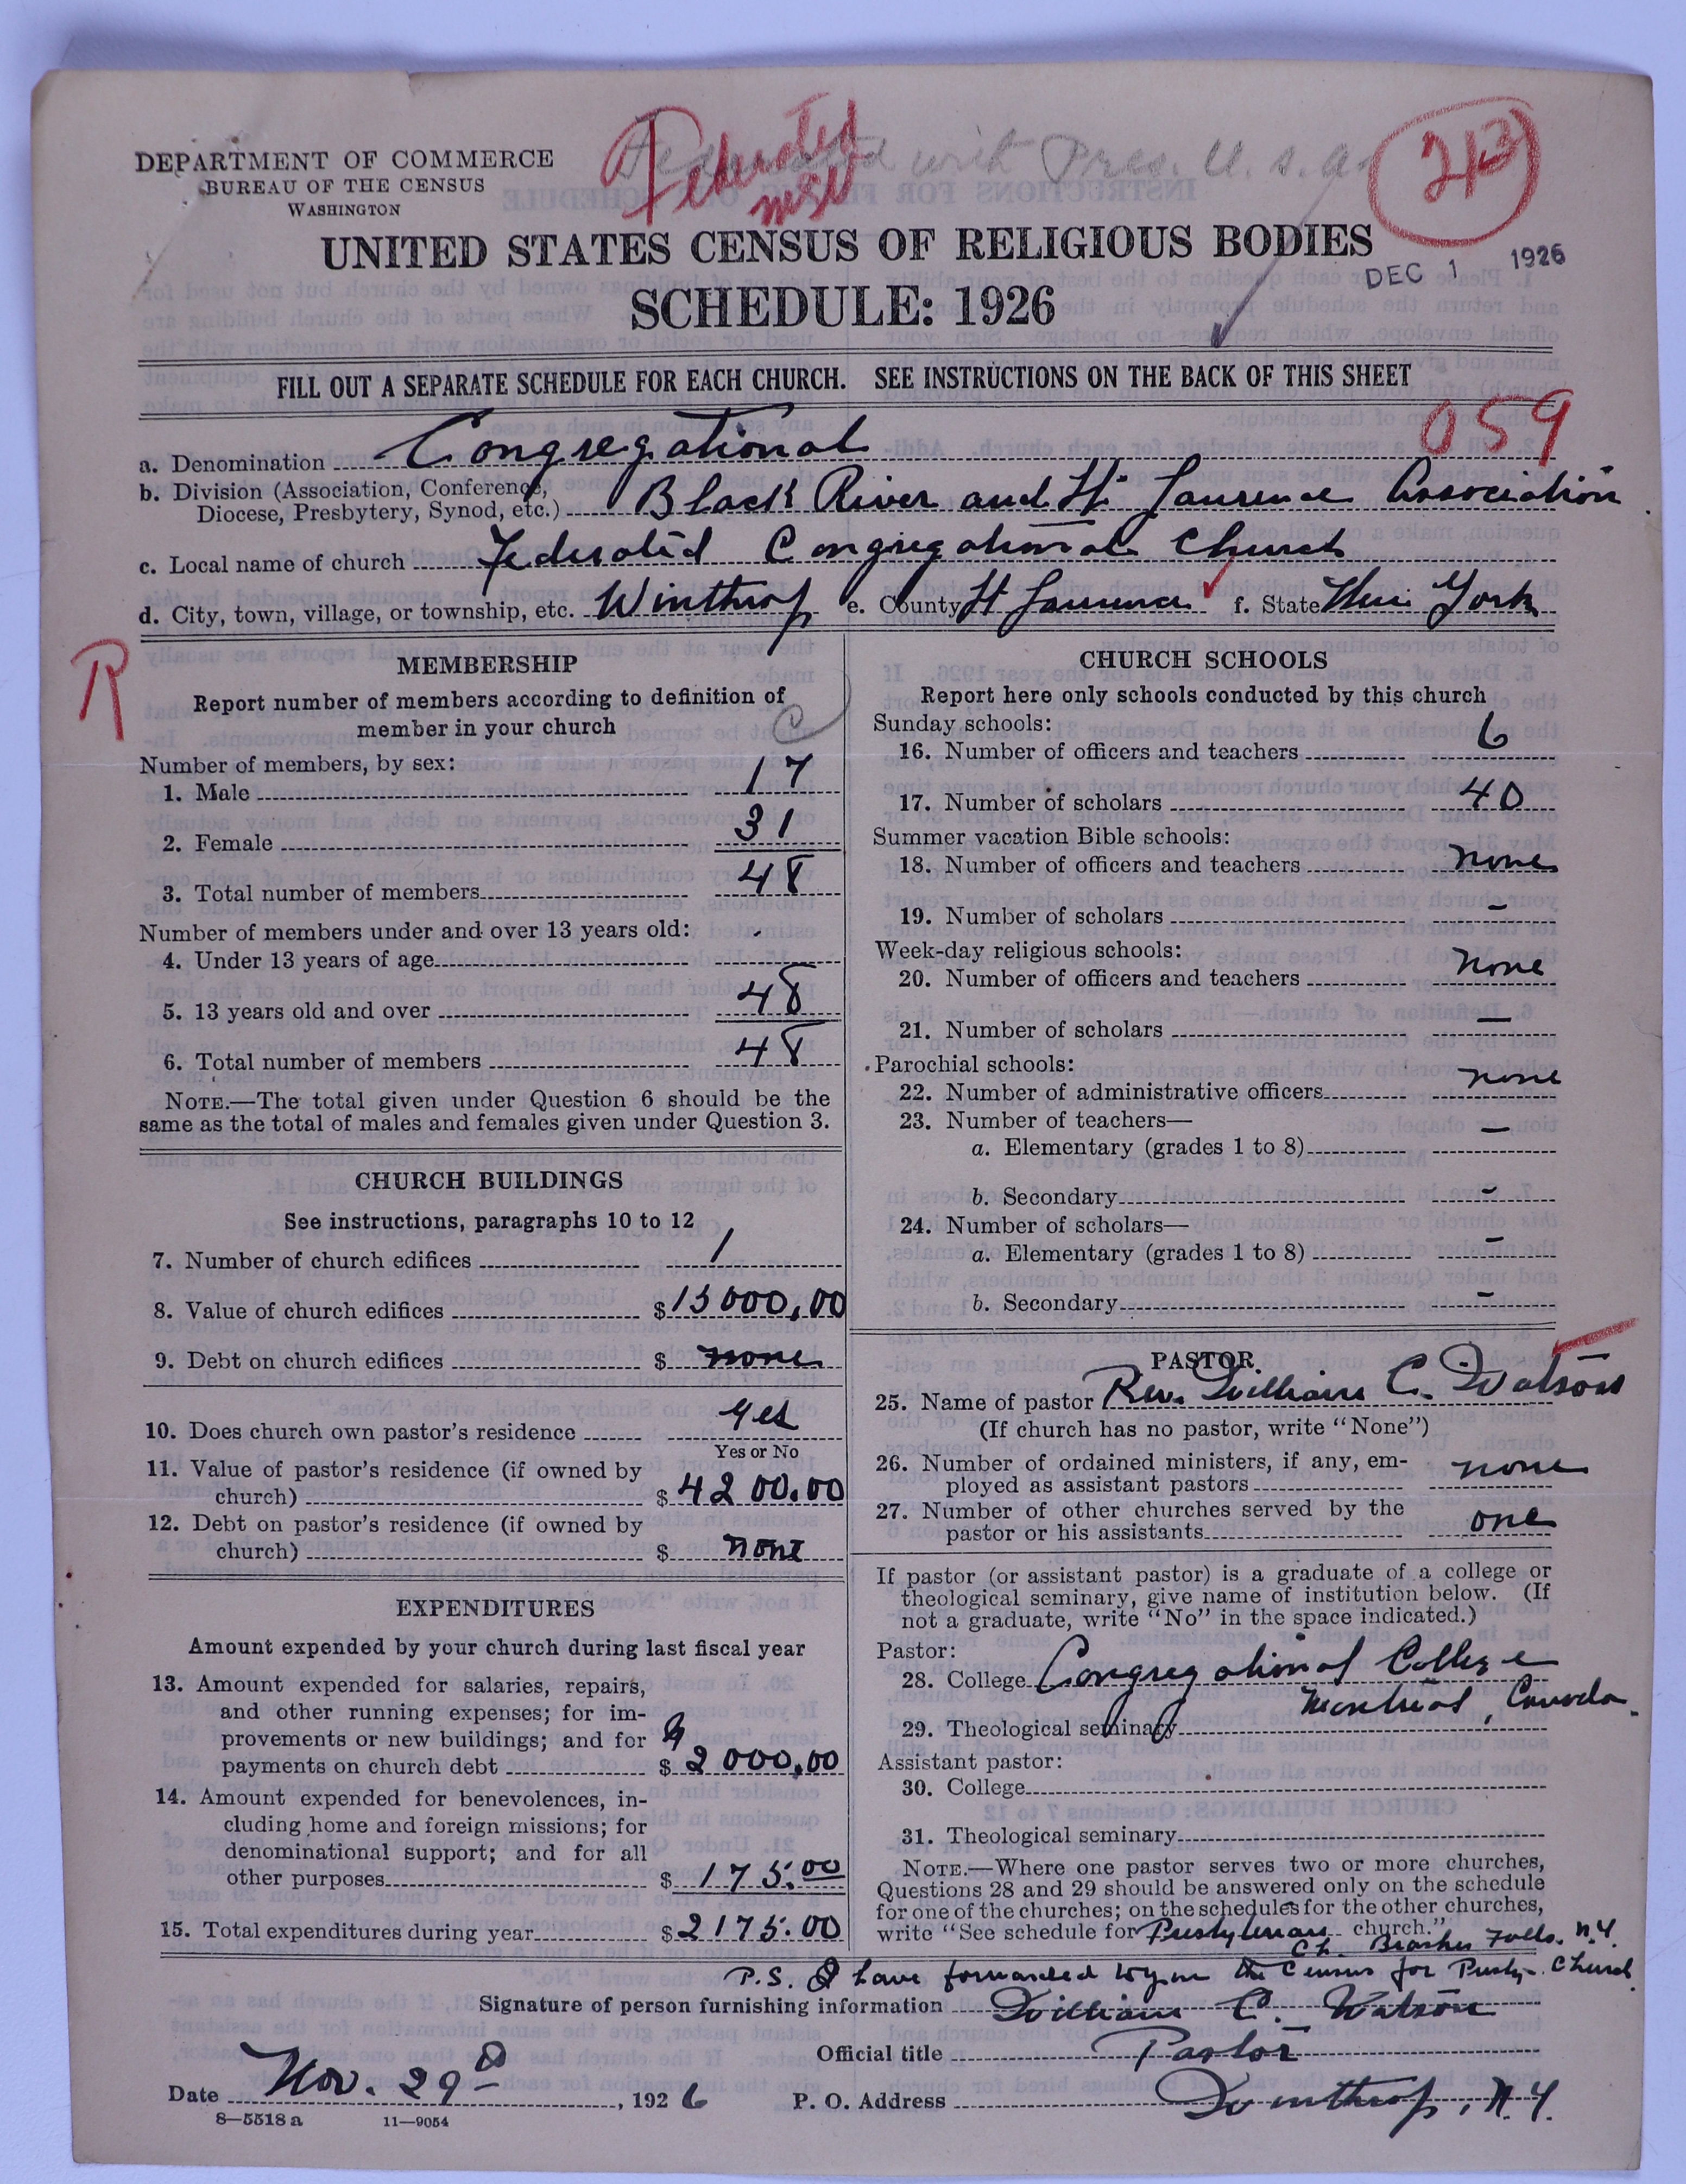 Federated with Pres. U.S.A.
Federated
213
DEPARTMENT OF COMMERCE
BUREAU OF THE CENSUS
WASHINGTON
UNITED STATES CENSUS OF RELIGIOUS BODIES
DEC 1 1926
SCHEDULE: 1926
FILL OUT A SEPARATE SCHEDULE FOR EACH CHURCH. SEE INSTRUCTIONS ON THE BACK OF THIS SHEET
059
a. Denomination Congregational
b. Division (Association, Conference, Diocese, Presbytery, Synod, etc.) Black River and St Laurence Association
c. Local name of church Federated Congregational Church
d. City, town, village, or township, etc. Winthrop e. County St Laurence f. State New York
R
MEMBERSHIP
Report number of members according to definition of
member in your church
C
Number of members, by sex:
1. Male 17
2. Female 31
3. Total number of members 48
Number of members under and over 13 years old:
4. Under 13 years of age -
5. 13 years old and over 48
6. Total number of members 48
NOTE.—The total given under Question 6 should be the
same as the total of males and females given under Question 3.
CHURCH BUILDINGS
See instructions, paragraphs 10 to 12
7. Number of church edifices 1
8. Value of church edifices $15000.00
9. Debt on church edifices $ none
10. Does church own pastor's residence yes
Yes or No
11. Value of pastor's residence (if owned by
church) $4200.00
12. Debt on pastor's residence (if owned by
church) $ none
EXPENDITURES
Amount expended by your church during last fiscal year
13. Amount expended for salaries, repairs,
and other running expenses; for im-
provements or new buildings; and for
payments on church debt $2000.00
14. Amount expended for benevolences, in-
cluding home and foreign missions; for
denominational support; and for all
other purposes $175.00
15. Total expenditures during year $2175.00
CHURCH SCHOOLS
Report here only schools conducted by this church
Sunday schools:
16. Number of officers and teachers 6
17. Number of scholars 40
Summer vacation Bible schools:
18. Number of officers and teachers none
19. Number of scholars -
Week-day religious schools:
20. Number of officers and teachers none
21. Number of scholars —
Parochial schools:
22. Number of administrative officers none
23. Number of teachers—
a. Elementary (grades 1 to 8) —
b. Secondary -
24. Number of scholars—
a. Elementary (grades 1 to 8) -
b. Secondary -
PASTOR
25. Name of pastor Rev. William C. Watson
(If church has no pastor, write "None")
26. Number of ordained ministers, if any, em-
ployed as assistant pastors none
27. Number of other churches served by the
pastor or his assistants one
If pastor (or assistant pastor) is a graduate of a college or
theological seminary, give name of institution below. (If
not a graduate, write "No" in the space indicated.)
Pastor:
28. College Congregational College
Montreal, Canada.
29. Theological seminary
Assistant pastor:
30. College
31. Theological seminary
NOTE.—Where one pastor serves two or more churches,
Questions 28 and 29 should be answered only on the schedule
for one of the churches; on the schedules for the other churches,
write "See schedule for Presbyterian church."
Ch. Brasher Falls. N.Y.
P.S. I have forwarded the Census for Presby. Church
Signature of person furnishing information William C. Watson
Official title Pastor
Date Nov. 29 , 1926 P. O. Address Winthrop, N.Y.
8—5518 a 11—9054